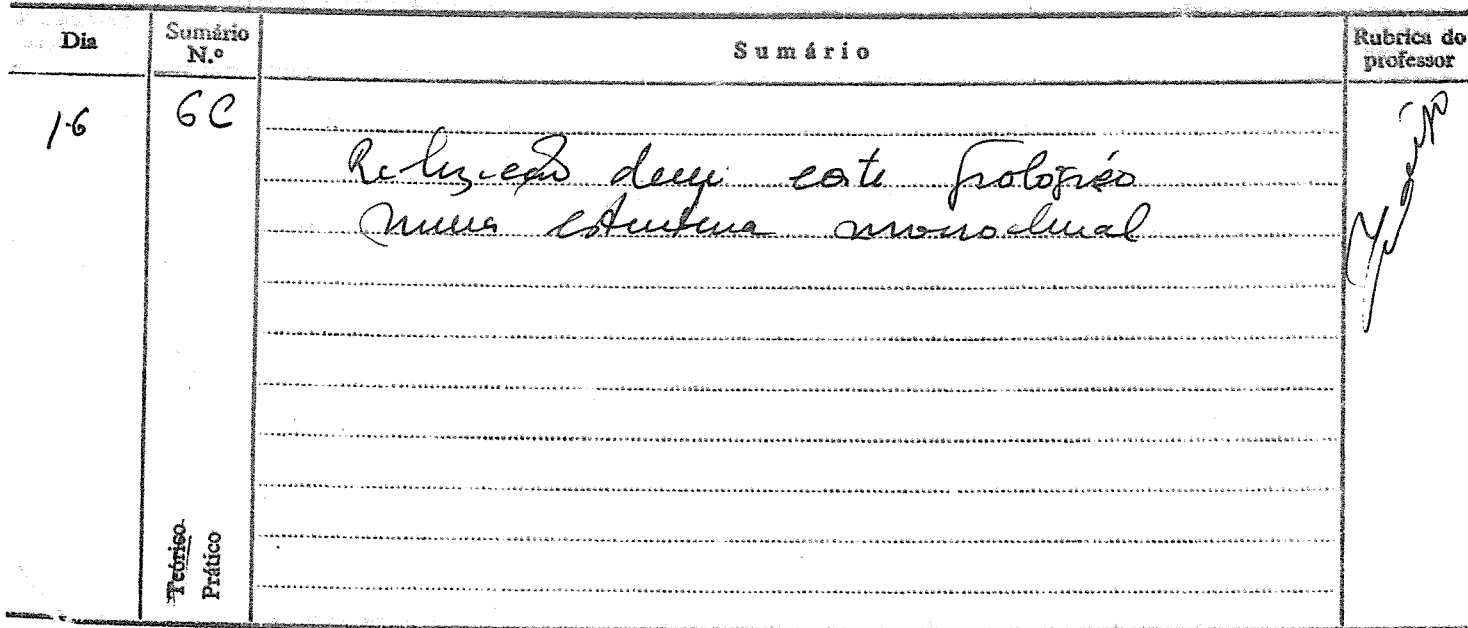 Dia
Sumário N.º
Sumário
Rubrica do professor
16
6C
Realização de um corte geológico
numa estrutura monoclinal
Teórico
Prático